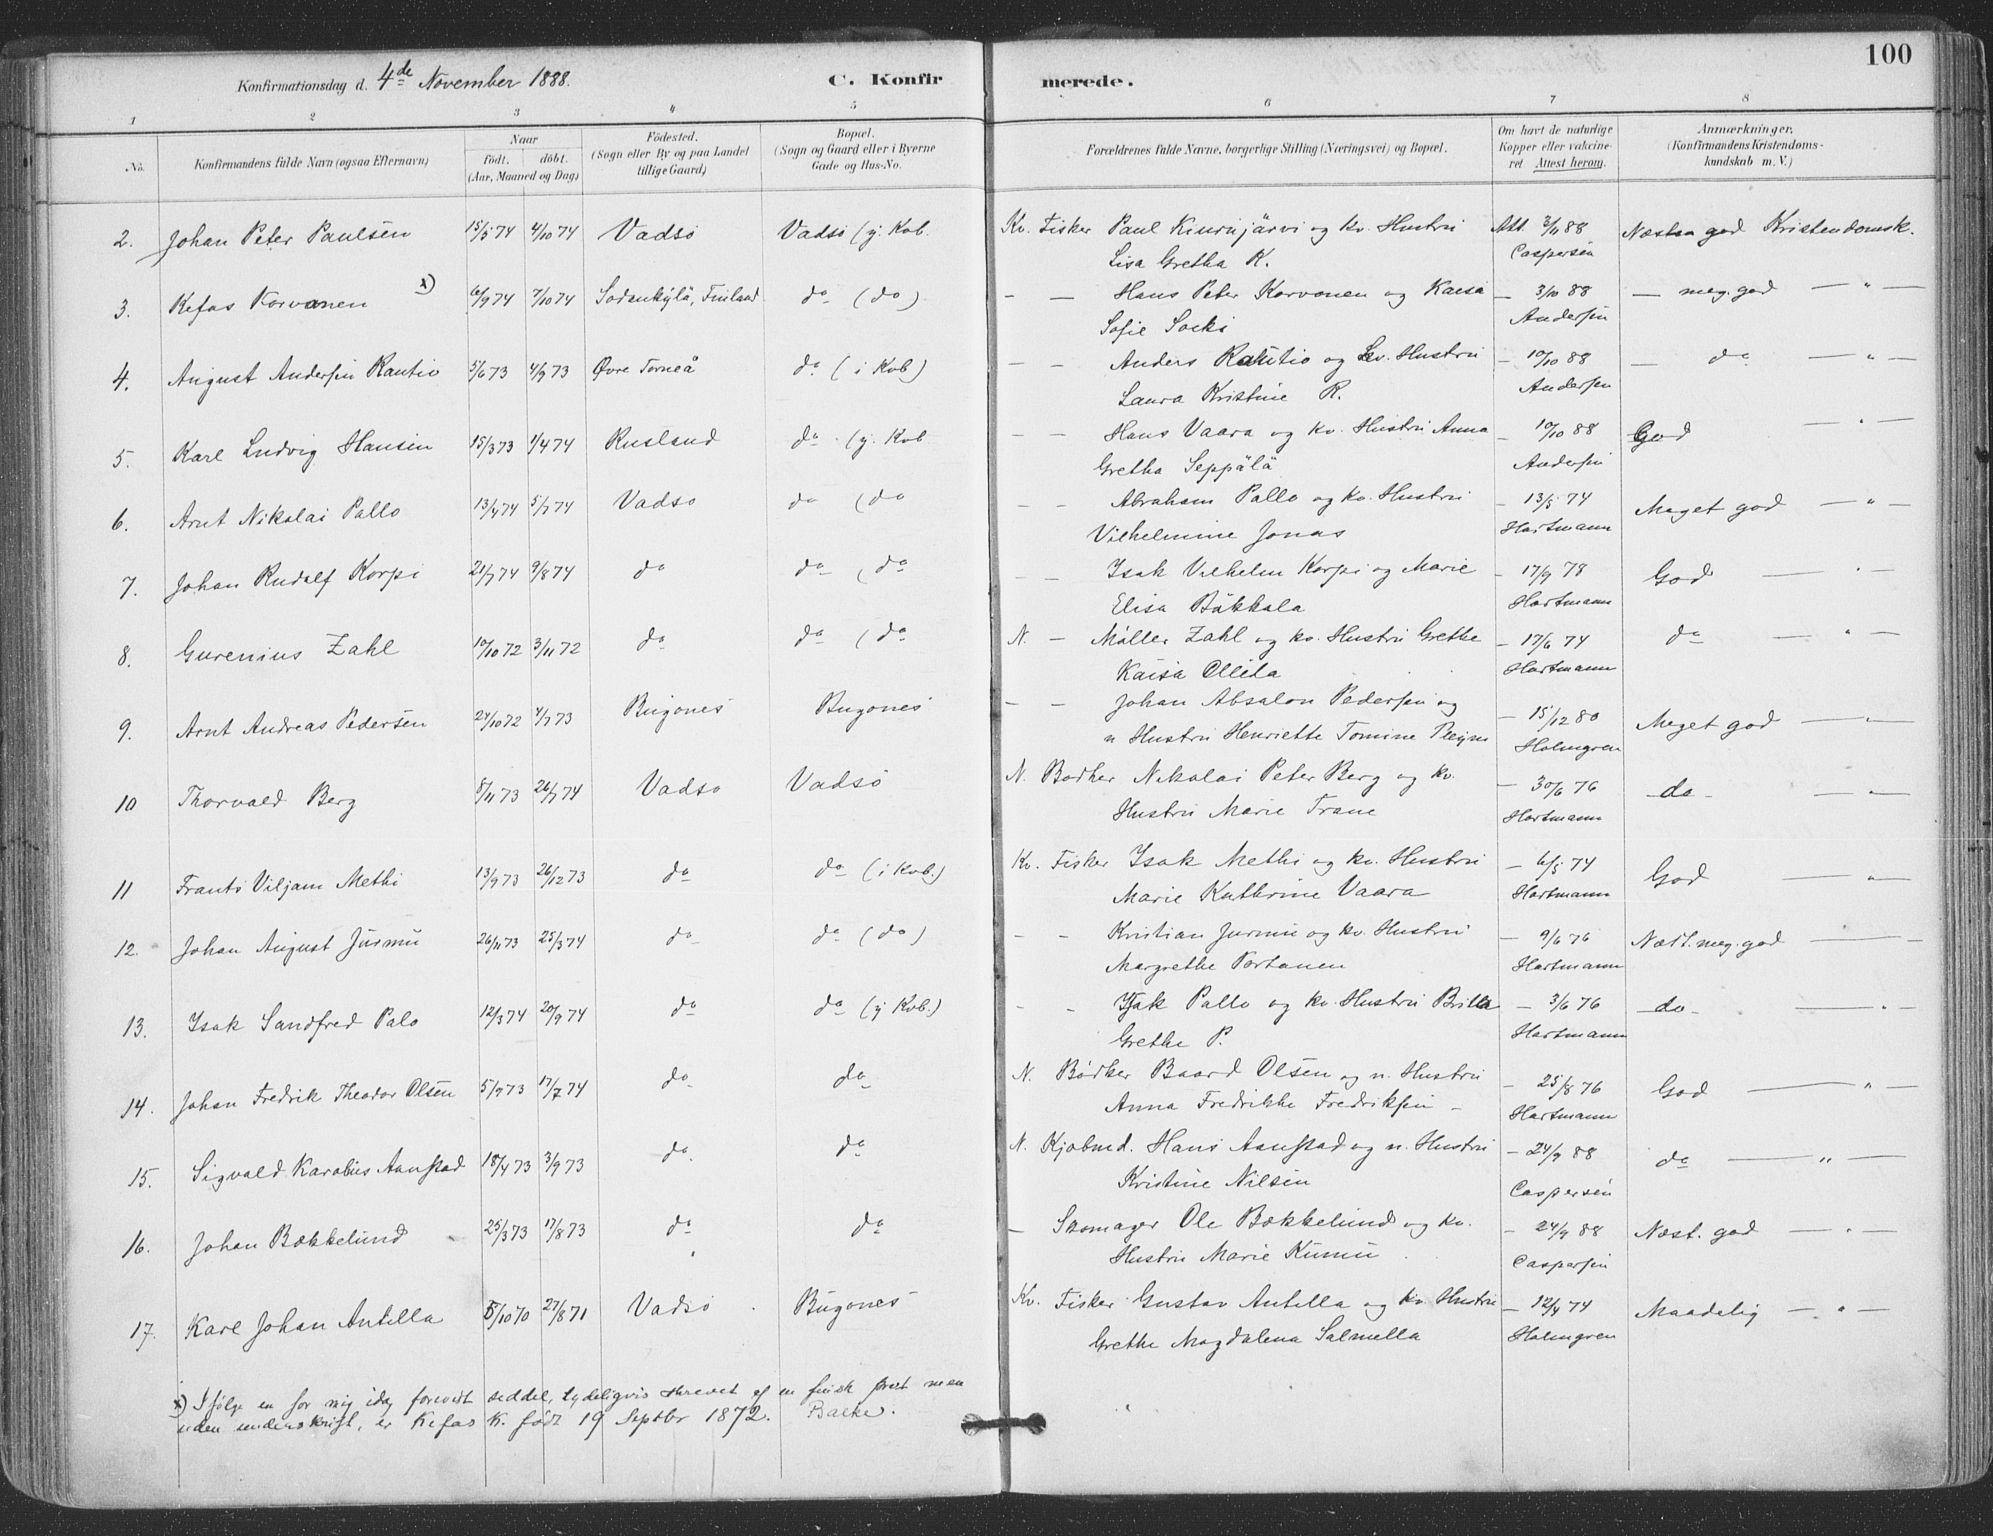 100
Konfirmationsdag d. 4de November 1888.
C. Konfirmerede.
1 2 3 4 5 6 7 8
No. Konfirmandens fulde Navn (ogsaa Efternavn) Naar födt. döbt. (Aar, Maaned og Dag) Födested. (Sogn eller By og paa Landet tillige Gaard) Bopæl. (Sogn og Gaard eller i Byerne Gade og Hus-No. Forældrenes fulde Navne, borgerlige Stilling (Næringsvei) og Bopæl. Om havt de naturlige Kopper eller vakcineret Attest herom. Anmærkninger. (Konfirmandens Kristendomskundskab m. V.)
2. Johan Peter Paulsen 15/5 74 4/10 74 Vadsö Vadsö (y. Kvb. Kv. Fisker Paul Kinnjärvi og kv. Hustru Att. 3/11 88 Næsten god Kristendomsk.
Lisa Gretha K. Caspersen
3. Kefas Korvanen x) 6/9 74 7/10 74 Sodankylä, Finland do (do) — — Hans Peter Korvanen og Kaisa — 3/10 88 — meg. god — " —
Sofie Socki Andersen
4. August Andersen Rautio 5/6 73 4/9 73 Øvre Torneå do (i Kvb) — — Anders Rautio og Lev. Hustru — 10/10 88 — do — " —
Laura Kristine R. Andersen
5. Karl Ludvig Hansen 15/3 73 1/4 74 Rusland do (y. Kvb. — — Hans Vaara og kv. Hustru Anna — 10/10 88 God "
Gretha Seppälä Andersen
6. Arnt Nikolai Pallo 13/4 74 5/7 74 Vadsö do (do — — Abraham Pallo og kv. Hustru — 13/5 74 Meget god — " —
Vilhelmine Jonas Hartmann
7. Johan Rudolf Korpi 21/7 74 9/8 74 do do (do — — Isak Vilhelm Korpi og Marie — 17/9 78 God — " —
Elisa Bäkkala Hartmann
8. Gurenius Zahl 10/10 72 3/11 72 do do (do N. — Møller Zahl og kv. Hustru Grethe — 17/6 74 do — " —
Kaisa Ollila Hartmann
9. Arnt Andreas Pedersen 24/10 72 4/7 73 Bugönes Bugönes — — Johan Absalon Pedersen og — 15/12 80 Meget god — " —
n Hustru Henriette Tomine Holmgren
10 Thorvald Berg 8/11 73 26/7 74 Vadsö Vadsö N. Bødker Nikolai Peter Berg og kv. — 30/6 76 do — " —
Hustru Marie Trane Hartmann
11 Frants Viljam Methi 13/9 73 26/12 73 do do (i Kvb.) Kv. Fisker Isak Methi og kv. Hustru — 6/5 74 God — " —
Marie Kathrine Vaara Hartmann
12. Johan August Jurmu 26/11 73 25/3 74 do do (do) — — Kristian Jurmu og kv. Hustru — 9/6 76 Næst. meg. god —
Margrethe Portanen Hartmann
13. Isak Sandfred Palo 12/3 74 20/9 74 do do (y Kvb.) — — Isak Pallo og kv. Hustru Britta — 3/6 76 do — " —
Grethe P. Hartmann
14. Johan Fredrik Theodor Olsen 5/9 73 17/7 74 do do N. Bødker Baard Olsen og n. Hustru — 25/8 76 God — " —
Anna Fredrikke Fredriksen — Hartmann
15. Sigvald Karolius Aanstad 18/4 73 3/9 73 do do N. Kjøbmd. Hans Aanstad og n. Hustru — 24/9 88 do — " —
Kristine Nilsen Caspersen
16. Johan Bækkelund 25/3 73 17/8 73 do do — Skomager Ole Bækkelund og kv. — 24/9 88 Næst. god — " —
Hustru Marie Kumu Caspersen
17. Karl Johan Antilla 5/10 70 27/8 71 Vadsö Bugönes Kv. Fisker Gustav Antilla og kv. Hustru — 12/4 74 Maadelig — " —
Grethe Magdalena Salmella Holmgren
x) Ifølge en for mig idag forevist seddel, tydeligvis skrevet af en finsk prest men
uden underskrift, er Kefas K. født 19 Septbr 1872. Balke.